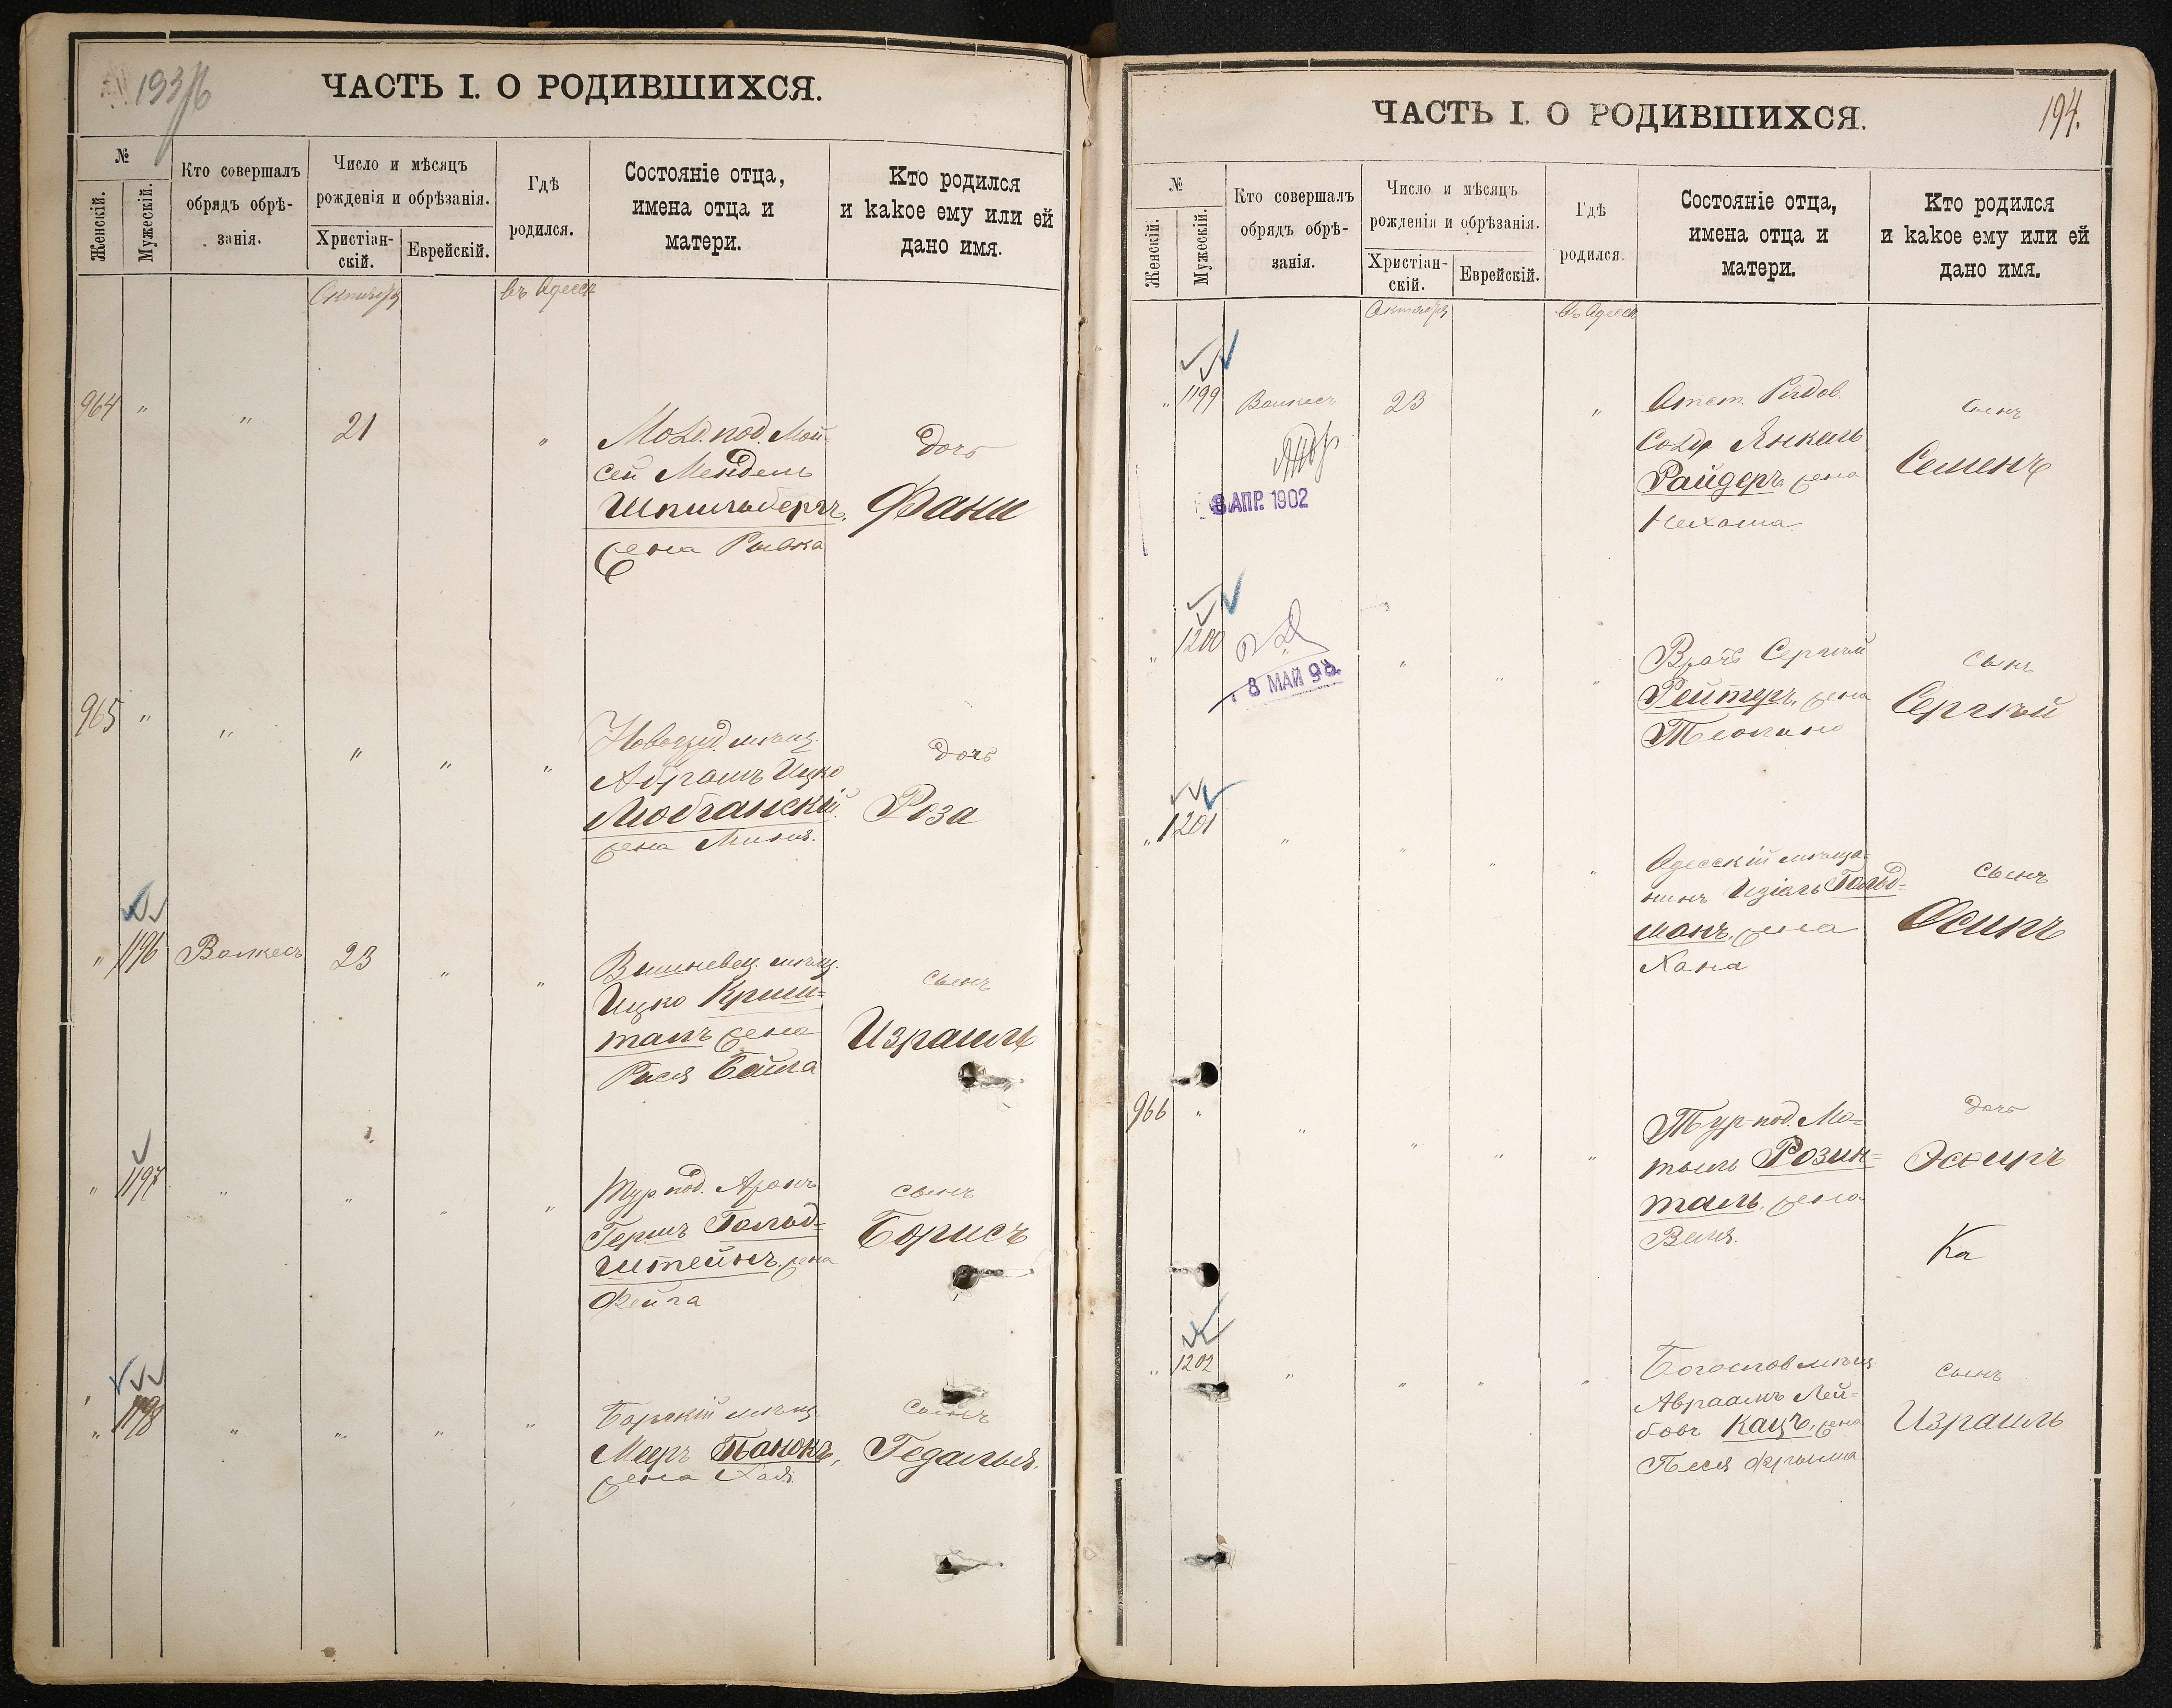 193/б
ЧАСТЬ I. О РОДИВШИХСЯ.
№
Женскій.
Мужескій.
Кто совершалъ
обрядъ обрѣ-
занія.
Число и мѣсяцъ
рожденія и обрѣзанія.
Христіан-
скій.
Еврейскій.
Гдѣ
родился.
Состояніе отца,
имена отца и
матери.
Кто родился
и какое ему или ей
дано имя.
Октября
въ Одессѣ
964 " " 21 "
Мод. под. Мой-
сей Мендель
Шпильбергъ,
жена Рывка
дочь
Фани
965 " " " " "
мѣщ.
Абрамъ Ицко
Любчанскій
жена Миня.
дочь
Роза
" 1196 Волкесъ 23 " "
Вишневец. мѣщ.
Ицко Криш-
талъ жена
Рися Бейла
сынъ
Израиль
" 1197 " " " "
Тур. под. Аронъ
Гершъ Гольд-
штейнъ. жена
Фейга
сынъ
Борисъ
" 1198 " " " "
Барскій мѣщ.
Мееръ
жена Хая.
сынъ
Гедалья.
194.
ЧАСТЬ I. О РОДИВШИХСЯ.
№
Женскій.
Мужескій.
Кто совершалъ
обрядъ обрѣ-
занія.
Число и мѣсяцъ
рожденія и обрѣзанія.
Христіан-
скій.
Еврейскій.
Гдѣ
родился.
Состояніе отца,
имена отца и
матери.
Кто родился
и какое ему или ей
дано имя.
Октября
въ Одессѣ
" 1199 Волкесъ 23 "
8 АПР. 1902
Отст. Рядов.
Солд. Янкель
Райдеръ жена
Нехама
сынъ
Семенъ
" 1200 " " "
8 МАЙ 98.
Врачъ Сергѣй
Рейтеръ, жена
сынъ
Сергѣй
" 1201 " " " "
Одесскій мѣща-
нинъ Изіель Гольд-
манъ. жена
Хана
сынъ
Осипъ
966 " " " " "
Тур. под. Мо-
тель Розен-
таль. жена
Веля.
дочь
Эсфирь
Ка
" 1202 " " " "
Богослов. мѣщ.
Авраамъ Лей-
бовъ Кацъ, жена
Песя Фрума
сынъ
Израиль